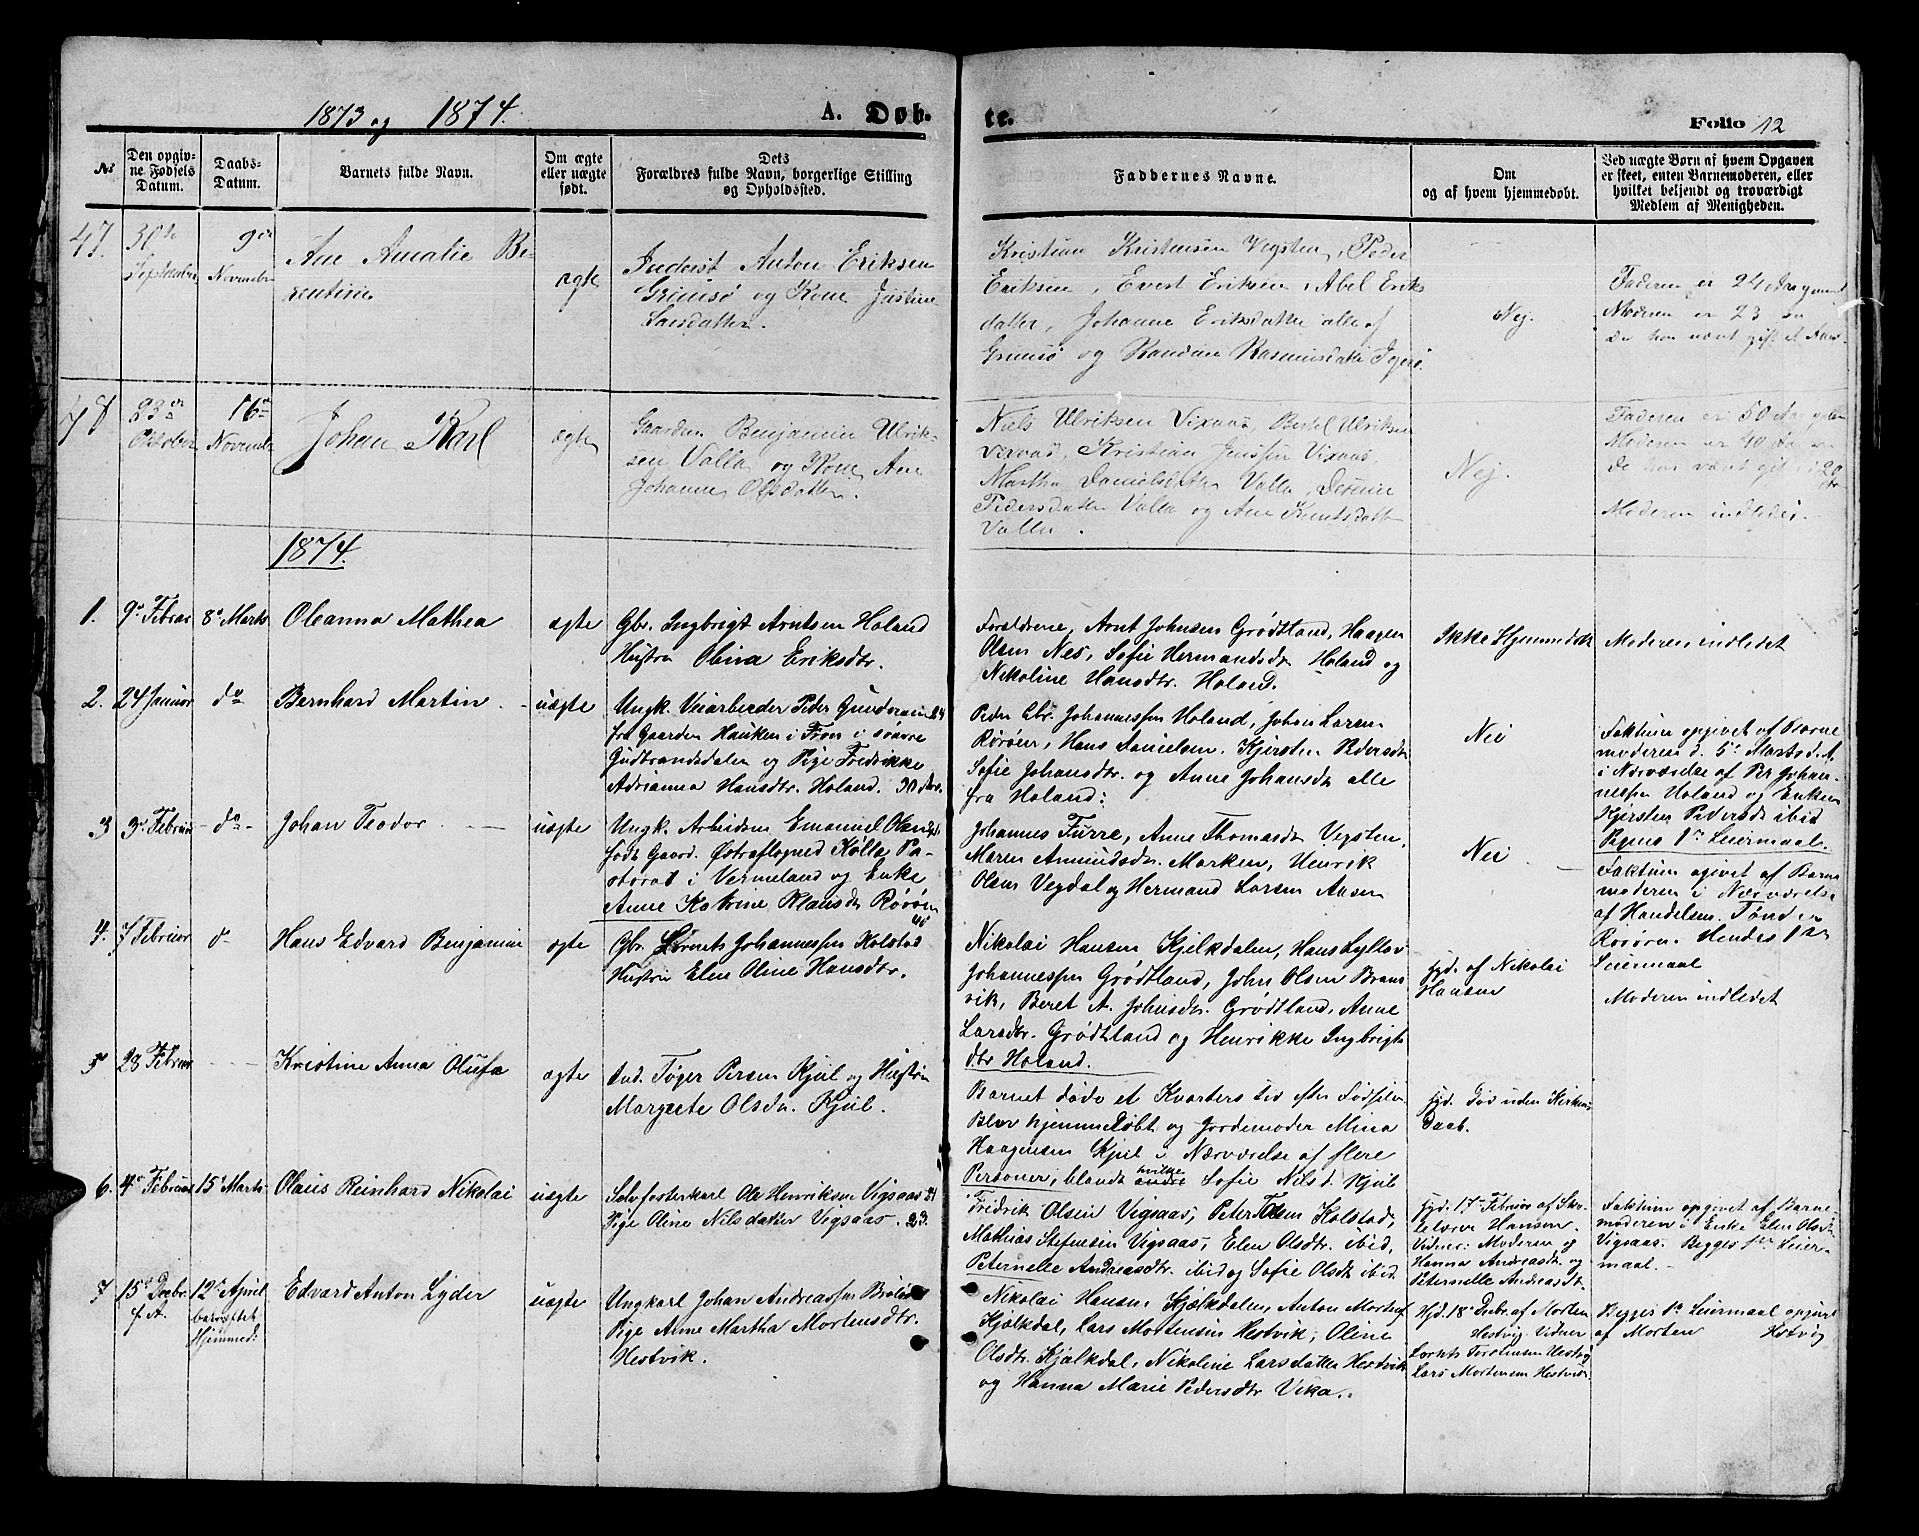 1873 og 1874.
A. Døb-
te.
Folio 12
No
Den opgiv-
ne Fødsels
Datum.
Daabs-
Datum.
Barnets fulde Navn.
Om ægte
eller uægte
født.
Dets
Forældres fulde Navn, borgerlige Stilling
og Opholdssted.
Faddernes Navne.
Om
og af hvem hjemmedøbt.
Ved uægte Børn af hvem Opgaven
er skeet, enten Barnemoderen, eller
hvilket beljendt og troværdigt
Medlem af Menigheden.
47.
30te
September
9de
November
Ane Amalie Be-
rentine
ægte
Inderst Anton Eriksen
Grimsø og Kone Justine
Larsdatter.
Kristian Kristensen Vegsten, Peder
Eriksen, Evert Eriksen, Abel Eriks
datter, Johanne Eriksdatte alle af
Grimsø og Rasmusdatte
Nej.
Faderen er 24 Aar
Moderen er 23
De har været gift
48
23de
Oktober
16de
November
Johan Karl
ægte
Gaardm. Benjamin Ulrik-
sen Valla og Kone Ane
Johanne Olsdatter.
Niels Ulriksen Vixaas, Bertel Ulriksen
Kristian Jenssen Vixaas,
Martha Danielsdatter Valla,
Pedersdatter Valla og Ane Knutsdatter
Valla.
Nej.
Faderen er 50 Aa
Moderen er 40 Aa
De har været gift i 20
Aar
Moderen indledet.
1874.
1.
9de Febuar
8de Marts
Oleanna Mathea
ægte
Gbr. Ingbrigt Arntsen Holand
Hustru Olina Eriksdtr.
Forældrene, Arnt Johnsen Grødtland, Haagen
Olsen Nes, Sofie Hermandsdtr Holand og
Nikoline Hansdtr. Holand.
Ikke Hjemmedøbt
Moderen indledet
2.
24 Januar
do
Bernhard Martin
uægte
Ungk. Veiarbeider Peder Gundersen 24
fra Gaarden Hauken i Fron i søndre
Gudbrandsdalen og Pige Fredrikke
Adrianna Hansdtr. Holand. 30 Aar.
Peder Gbr. Johannessen Holand, Johan Larsen
Rørøen, Hans Danielsen, Kjersten Pedersdtr
Sofie Johansdtr. og Anne Johansdt alle
fra Holand:
Nei
Faktum opgivet af Barne
moderen d. 5te Marts d. A.
i Nærværelse af Per Johan-
nessen Holand og Enken
Kjersten Pedersdt ibid
Pigens 1ste Leiermaal.
3
3de Februar
do
Johan Teodor
uægte
Ungk. Arbeidsm. Emanuel Olsen
født Gaard. Østraflogned Kølla Pa-
storat i Vermeland og Enke
Anne Katrine Klausdtr Rørøen
Johannes Furre, Anne Thomasdt Vegsten,
Maren Amundsdtr. Marken, Henrik
Olsen Vegdal og Hermand Larsen Aasen
Nei
Faktum ogivet af Barne
moderen i Nærværelse
af Handelsm. Tønder
Rørøen. Hendes 1ste
Leiermaal
4.
7 Februar
do
Hans Edvard Benjamin
ægte
Gbr. Lorents Johannessen Kolstad
Hustru Elen Oline Hansdtr.
Nikolai Hansen Kjelkdalen, Hans Lyllov
Johannessen Grødtland, John Olsen Brans
vik, Beret A. Johnsdtr. Grødtland, Anne
Larsdtr. Grødtland og Henrikke Ingbrigt
dtr Holand.
Hjd. af Nikolai
Hansen
Moderen indledet
5
28 Februar
Kristine Anna Olufa
ægte
Ind. Tøger Persen Kjul og Hustru
Margrete Olsdtr. Kjul.
Barnet døde et Kvarters tid efter Fødselen.
Blev hjemmedøbt og Jordemoder Mina
Haagensen Kjul i Nærværelse af flere
Personer, blandt andre hvilke Sofie Nilsd Kjul
Hjd. Død uden Kirkens
Daab.
6.
4de Februar
15de Marts
Olaus Reinhard Nikolai
uægte
Selvfosterkarl Ole Henriksen Vigsaas 21
Pige Oline Nilsdatter Vigsaas. 23.
Fridrik Olsen Vigsaas, Peter Olsen Kolstad,
Mathias Stefensen Vigsaas, Elen Olsdtr. ibid,
Peternelle Andreasdtr. ibid og Sofie Olsdt ibid
Hjd. 17de Februar af Sko-
lelærer Hansen.
Vidner: Moderen og
Hanna Andreasdt. og
Peternelle Andreasdt.
Faktum opgivet af Barne
moderen i Enke Elen Olsdt
Vigsaas. Begges 1ste Leier-
maal.
7
15de Decbr.
f. A.
12te April
bekræftet
Hjemmed:
Edvard Anton Lyder
uægte
Ungkarl Johan Andreassen
Pige Anne Martha Mortensdtr.
Hestvik.
Nikolai Hansen Kjælkdalen, Anton Mortens
Kjælkdal, Lars Mortensen Hestvik, Oline
Olsdtr. Kjælkdal, Nikoline Larsdatter Hestvik
og Hanna Marie Pedersdtr Vika.
Hjd. 18de Decbr. af Morten
Hestvig. Vidner
Lornts Torstensen Hestvig
Lars Mortensen Hestvik.
Begges 1ste Leiermaal opgivet
af Morten Hestvig